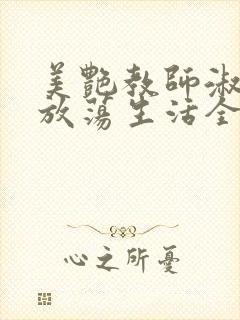 美艷教師淑
放蕩生活全
心之所憂